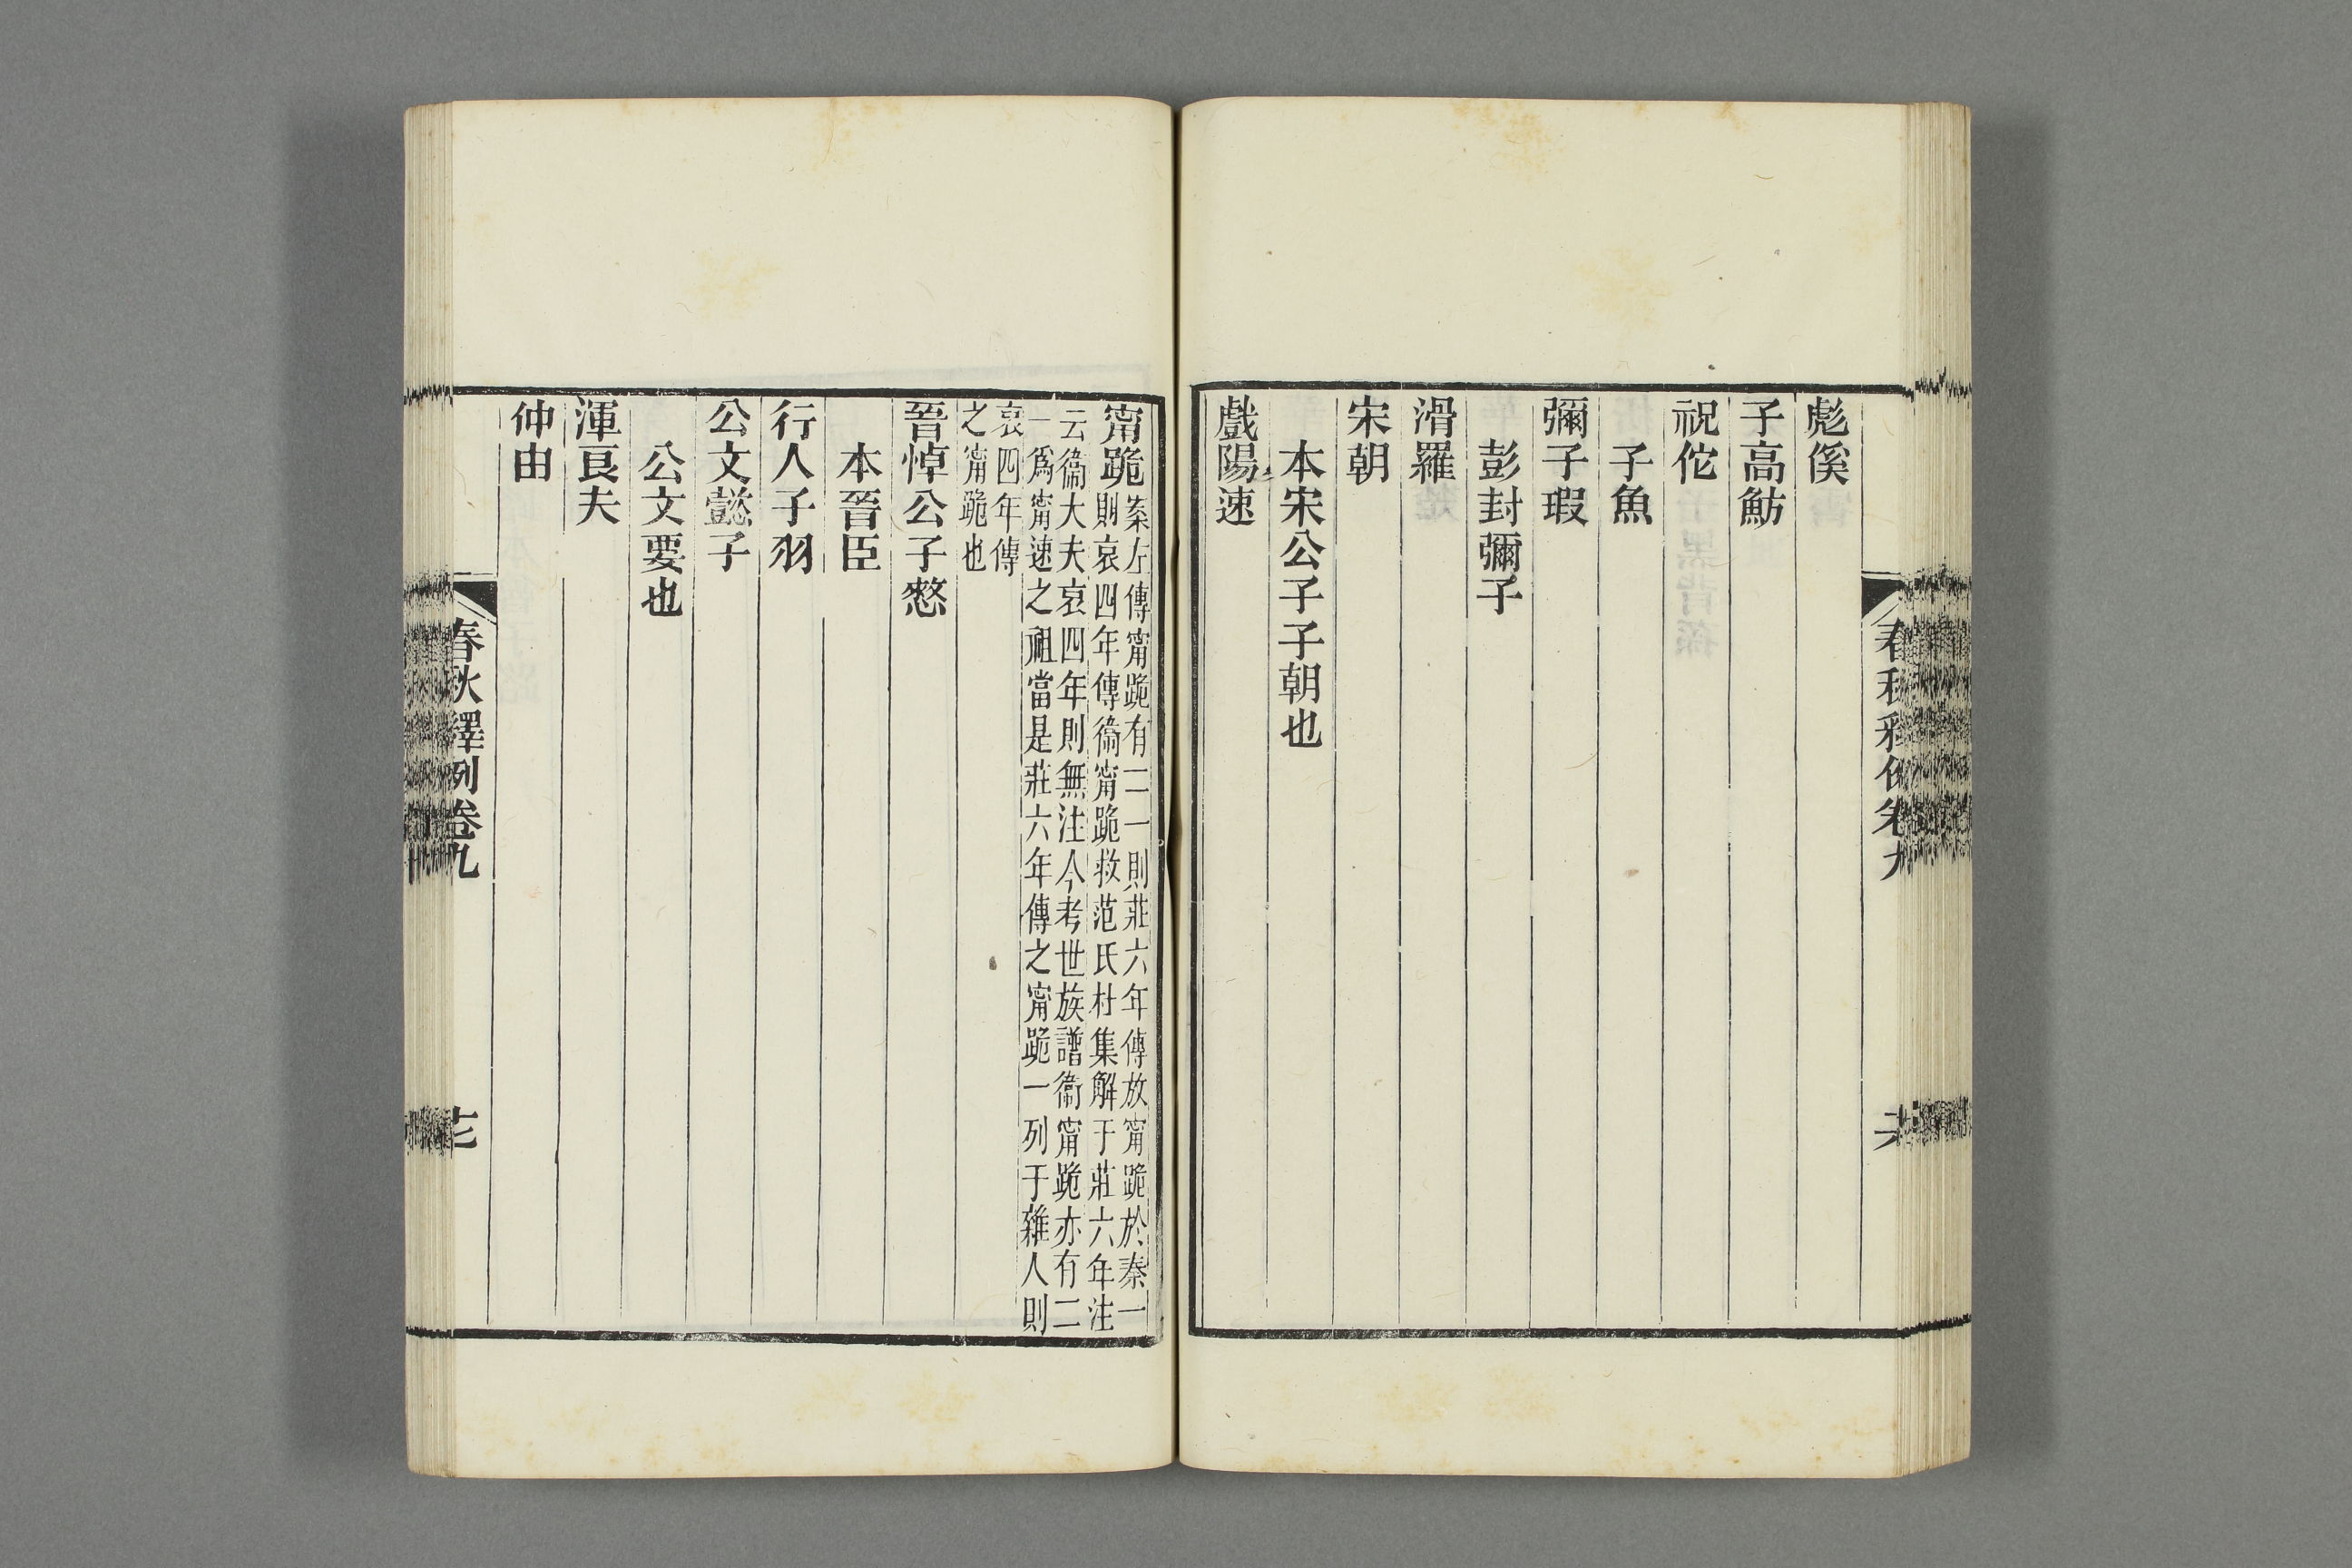 彪傒
子高魴
祝佗
子魚
彌子瑕
彭封彌子
滑羅
宋朝
本宋公子子朝也
戲陽速
甯跪
案左傳甯跪有二一則莊六年傳放甯跪於秦一
則哀四年傳衞甯跪救范氏杜集解于莊六年注
云衞大夫哀四年則無注今考世族譜衞甯跪亦有二
一爲甯速之祖當是莊六年傳之甯跪一列于雜人則
哀四年傳
之甯跪也
晉悼公子憖
本晉臣
行人子羽
公文懿子
公文要也
渾良夫
仲由
春秋釋例卷九